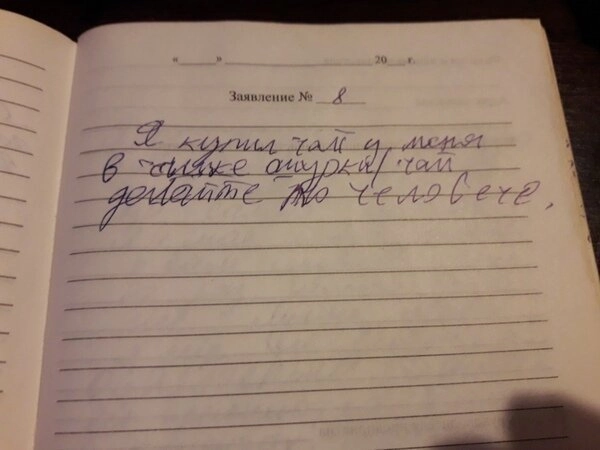 « » 20 г.
Заявление № 8
Я купил чай у меня
в чашке огурки, чай
делайте по человече.